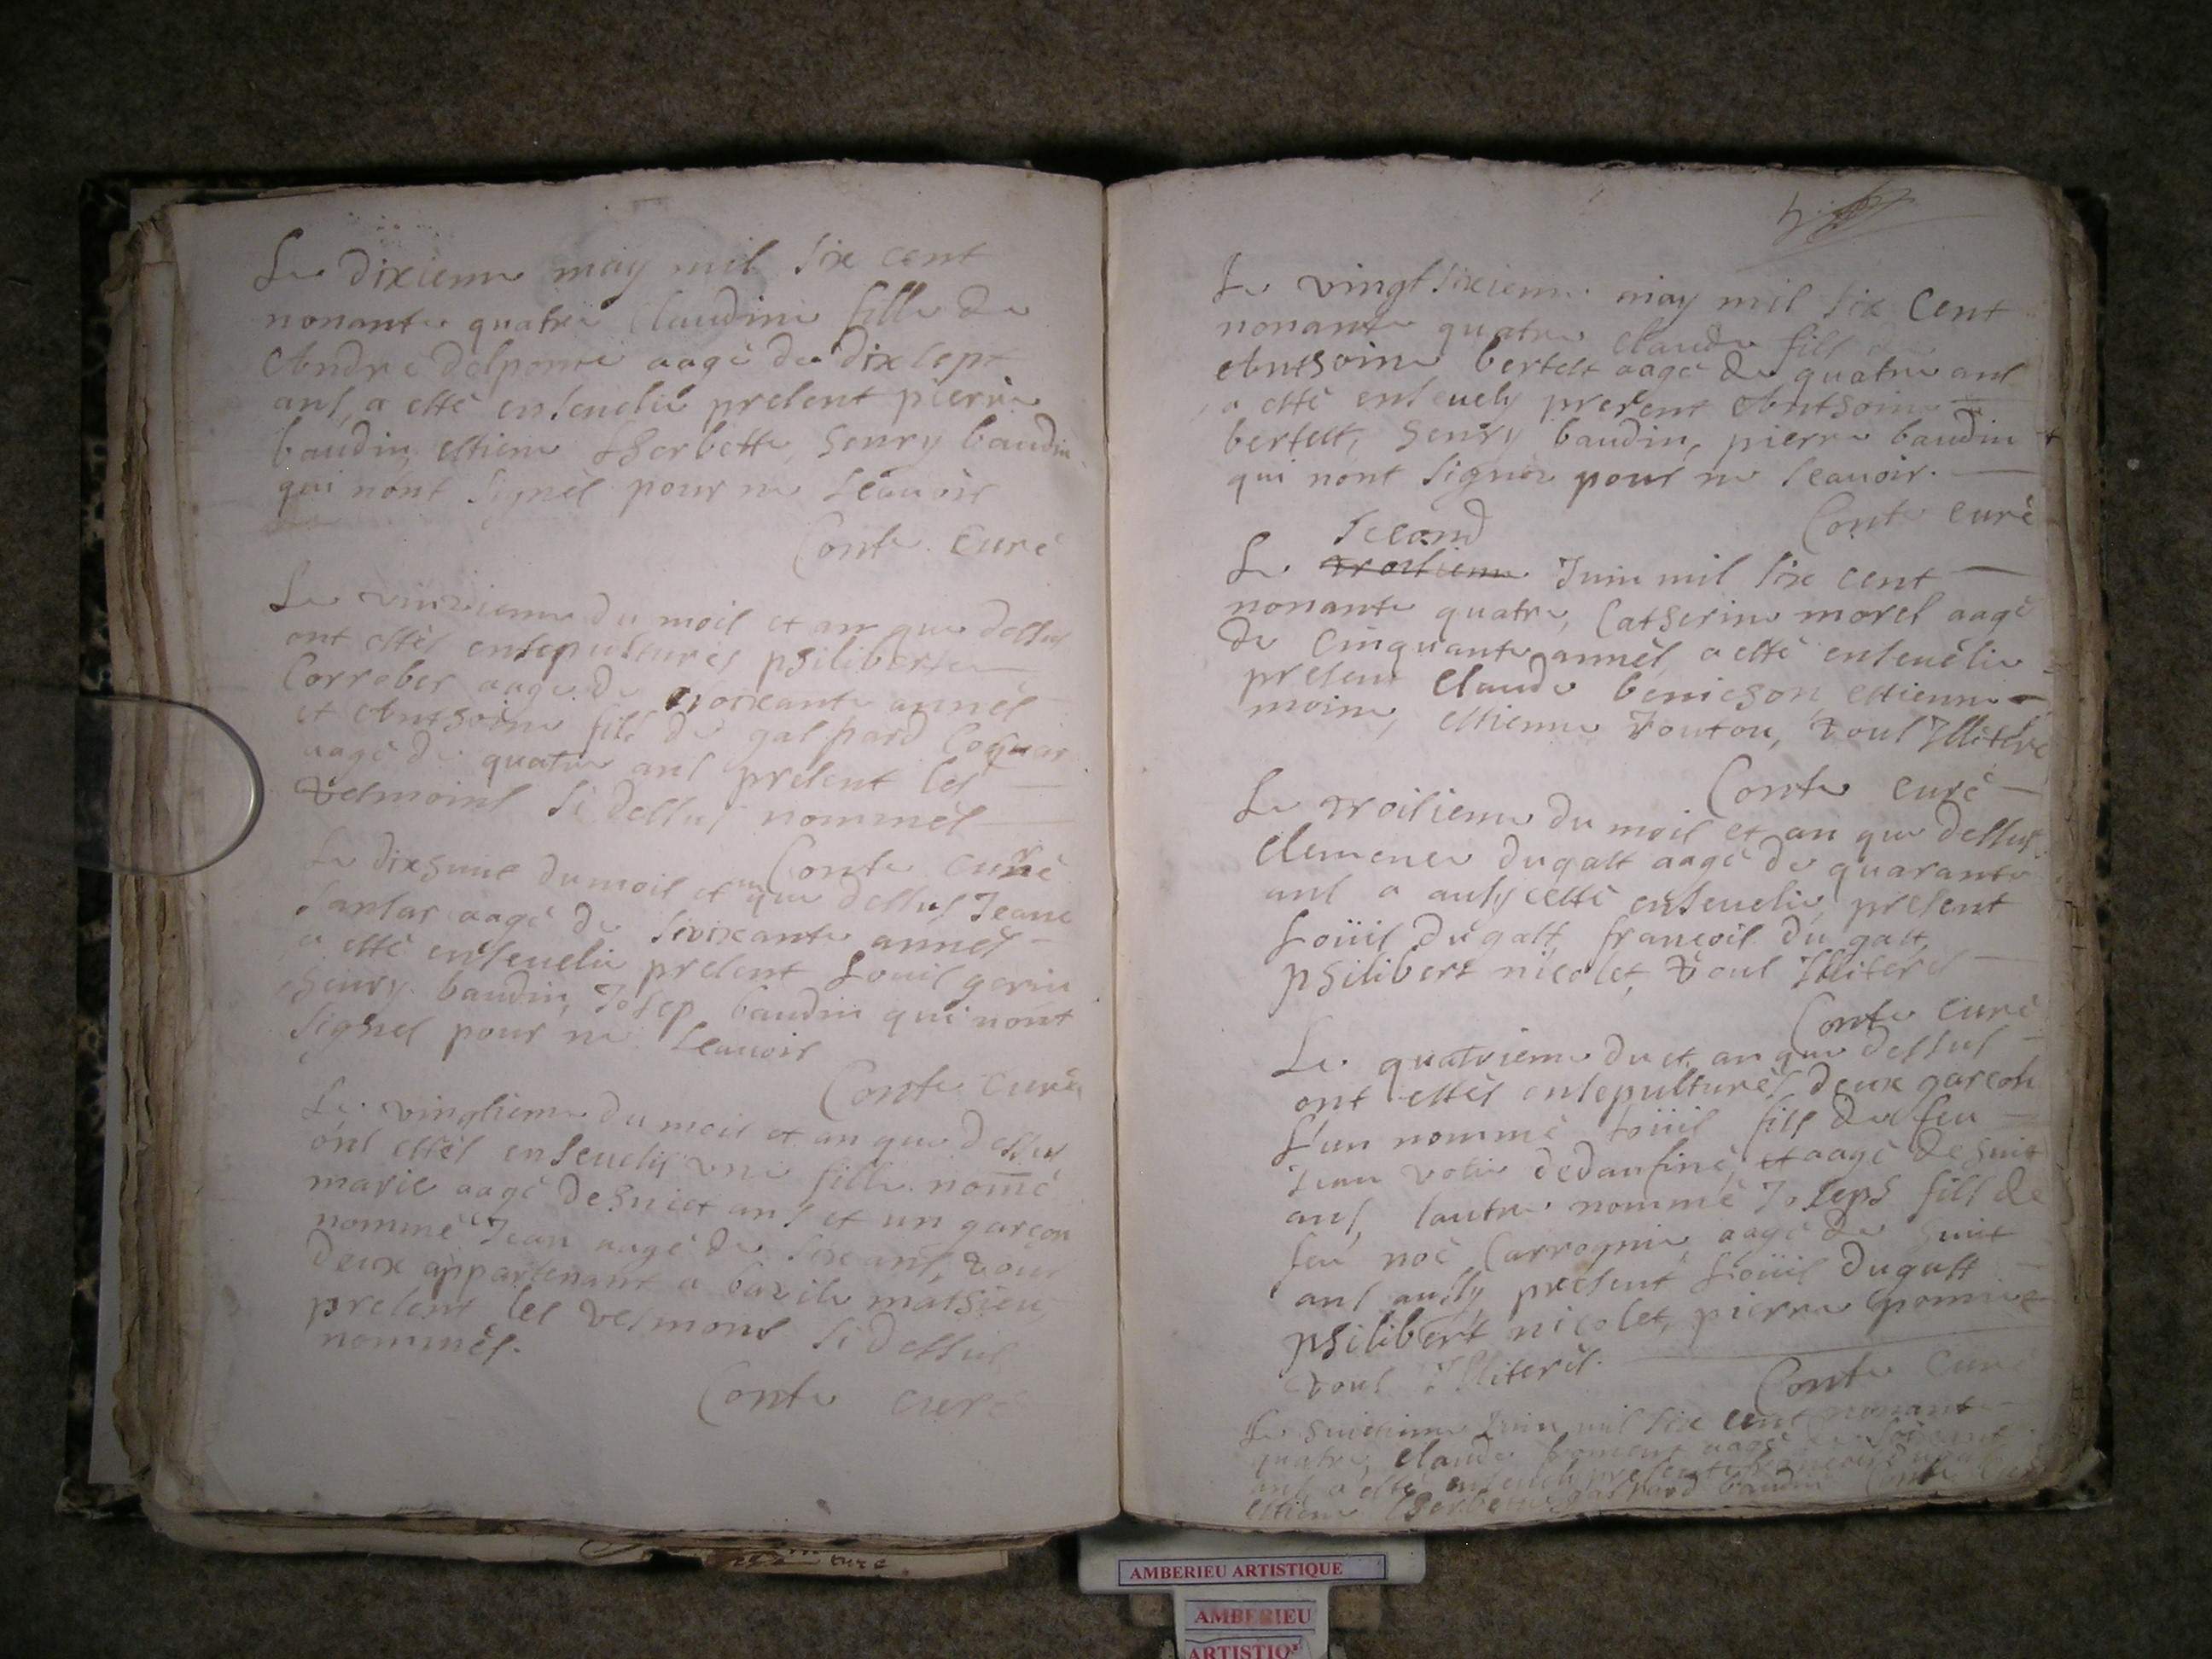 Le dixieme may mil six cent
nonante quatre Claudine fille de
Andre delponne aagé de dix sept
ans, a esté enseuelie present pierre
baudin, estiene therbette, henry baudin
qui nont signés pour ne scauoir
Conte curé
Le du mois et an que dessus
ont estés ensepulturés philiberte
Corrober aagé de soixante annés
et Anthoine fils de gaspard Coquar
aagé de quatre ans present les
tesmoins si dessus nommés
Conte curé
Le dixhuict du mois et an que dessus Jeane
santar aagé de soixante annés
a esté enseuelie present Louis gerin
henry baudin, Josep baudin qui nont
signes pour ne scauoir
Conte curé
Le vingtieme du mois et an que dessus
ont estés enseuelis une fille nomé
marie aagé de huict ans et un garçon
nommé Jean aagé de six ans, tous
deux appartenant a bazile mathieu,
present les tesmons si dessus
nommés.
Conte curé
Le vingt sixieme may mil six Cent
nonante quatre claude fils de
Anthoine bertet aagé de quatre ans
a esté enseuely present Anthoine
bertet, henry baudin, pierre baudin
qui nont signés pour ne scauoir.
Conte curé
second
Le troisieme Juin mil six cent
nonante quatre, Catherine morel aagé
de cinquante annés, a esté enseuélie
present claude benicson, estienne
moine, estienne Touton, tous Illiteré
Conte curé
Le troisieme du mois et an que dessus
clemence dugalt aagé de quarante
ans a ausy esté enseuelie, present
Loüis dugalt, francois dugalt,
philibert nicolet, tous Illiterés
Conte curé
Le quatrieme du et an que dessus
ont estés ensepulturés deux garçons
L'un nommé Loüis fils de feu
Jean dedaufiné, et aagé de huit
ans, lautre nommé Joseph fils de
feu noé Carrognie, aagé de huit
ans ausy, present Loüis dugalt
philibert nicolet, pierre pomie
tous illiterés.
Conte curé
Le huitieme Juin mil six cent nonante
quatre, claude froment aagé de soixante
ans a esté enseueli present francois dugalt
estiene therbette gaspard baudin Conte curé
AMBERIEU ARTISTIQUE
AMBERIEU
ARTISTIQ